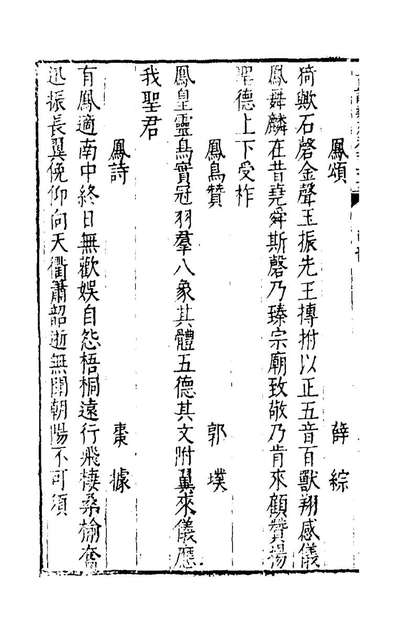 鳳頌　薛綜
猗歟石磬金聲玉振先王摶拊以正五音百獸翔感儀
鳳舜麟在昔堯舜斯磬乃臻宗廟致敬乃肯來顧贊揚
聖德上下受祚
鳳鳥贊　郭璞
鳳皇靈鳥實冠羽羣八象其體五德其文附翼來儀應
我聖君
鳳詩　棗據
有鳳適南中終日無歡娱自怨梧桐遠行飛棲桑榆奮
迅振長翼俛仰向天衢蕭韶逝無聞朝陽不可須